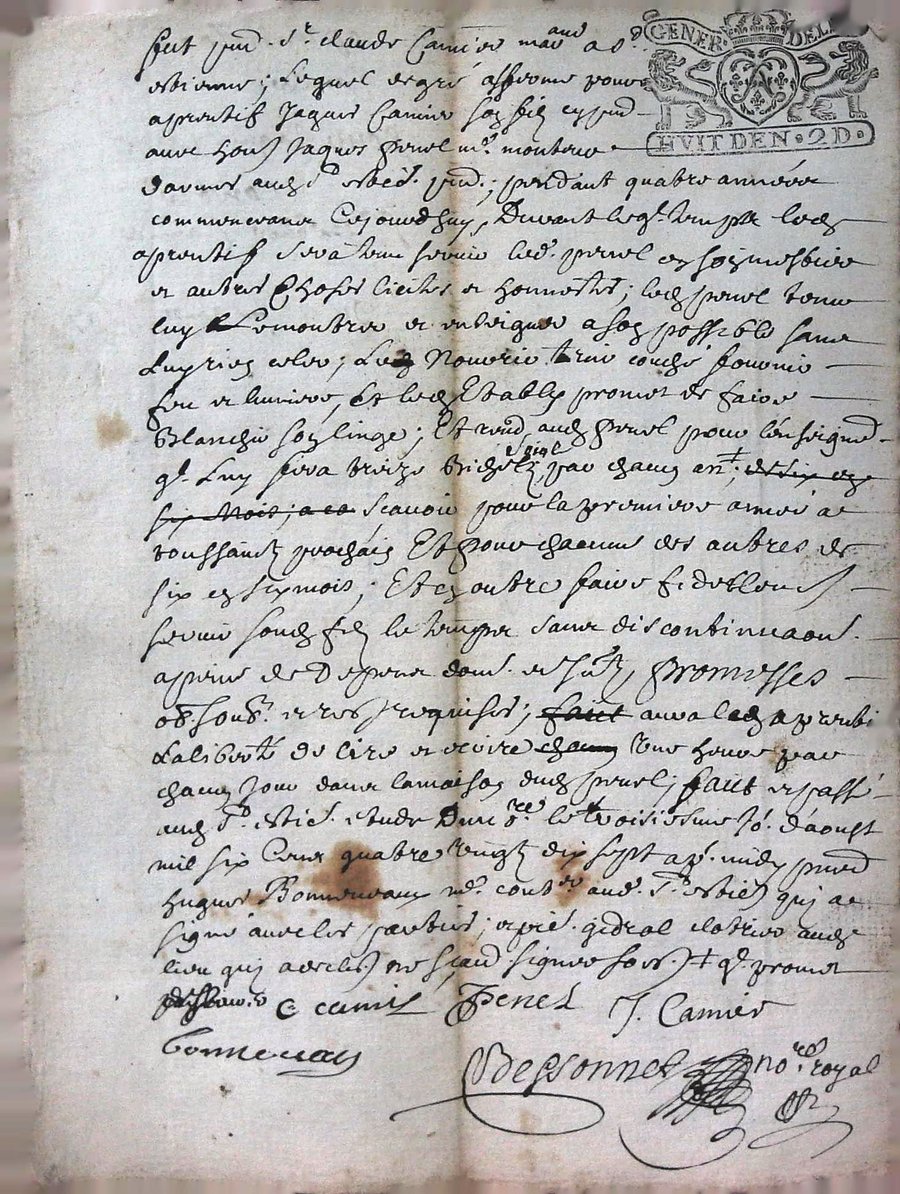 GENER. DEL
HVIT DEN. 2D.
fut pnt. Sr. claude Camier mand a St.
estienne; Lequel de gré afferme pour
aprentif Jaques Camier son filz cy pnt
avec hon. Jaques penel mr. monteur
darmes aud. St. estie. pnt.; pendant quatre années
commenceans Cejourdhuy, Durant leql. temps led.
aprentif sera tenu servir led. penel en son mestier
et autres choses licites et honnestes; led. penel tenu
luy Le monstrer et enseigner a son possible sans
Luy rien celer; Led. Nourrir tenir couché fournir
feu et lumiere, Et led. Estably promet de faire
Blanchir son linge; Et rend. aud. penel pour l'enseignemt
ql. Luy fera treize bichetz seigle par chacun an ‡; de six en
six mois; a ce Scavoir pour la premiere année a
toussainctz prochain Et pour chacune des autres de
six en six mois; Et en outre faire fidellem.
servir sond. filz le temps sans discontinuaon.
a peine de Depens dom. et intz. promesses
ob. soub. et res. requises; faict aura led. aprenti
La liberté de lire et ecrire chacun Une heure par
chacun Jour dans la maison dud. penel; faict et passé
aud. St. estie. estude Du no.re le troisiesme Jo. d'aoust
mil six Cens quatre vingtz dix sept ap. midy pnt
hugues Bonneveaux mr. cout.er aud. St. estie. quy a
signé avec les parties; et pie. gidral clotrier aud.
lieu quy a declaré ne scavoir signer so. ‡ ql. promet
C camier Penel J. Camier
bonnevau
Bessonnet no.re royal